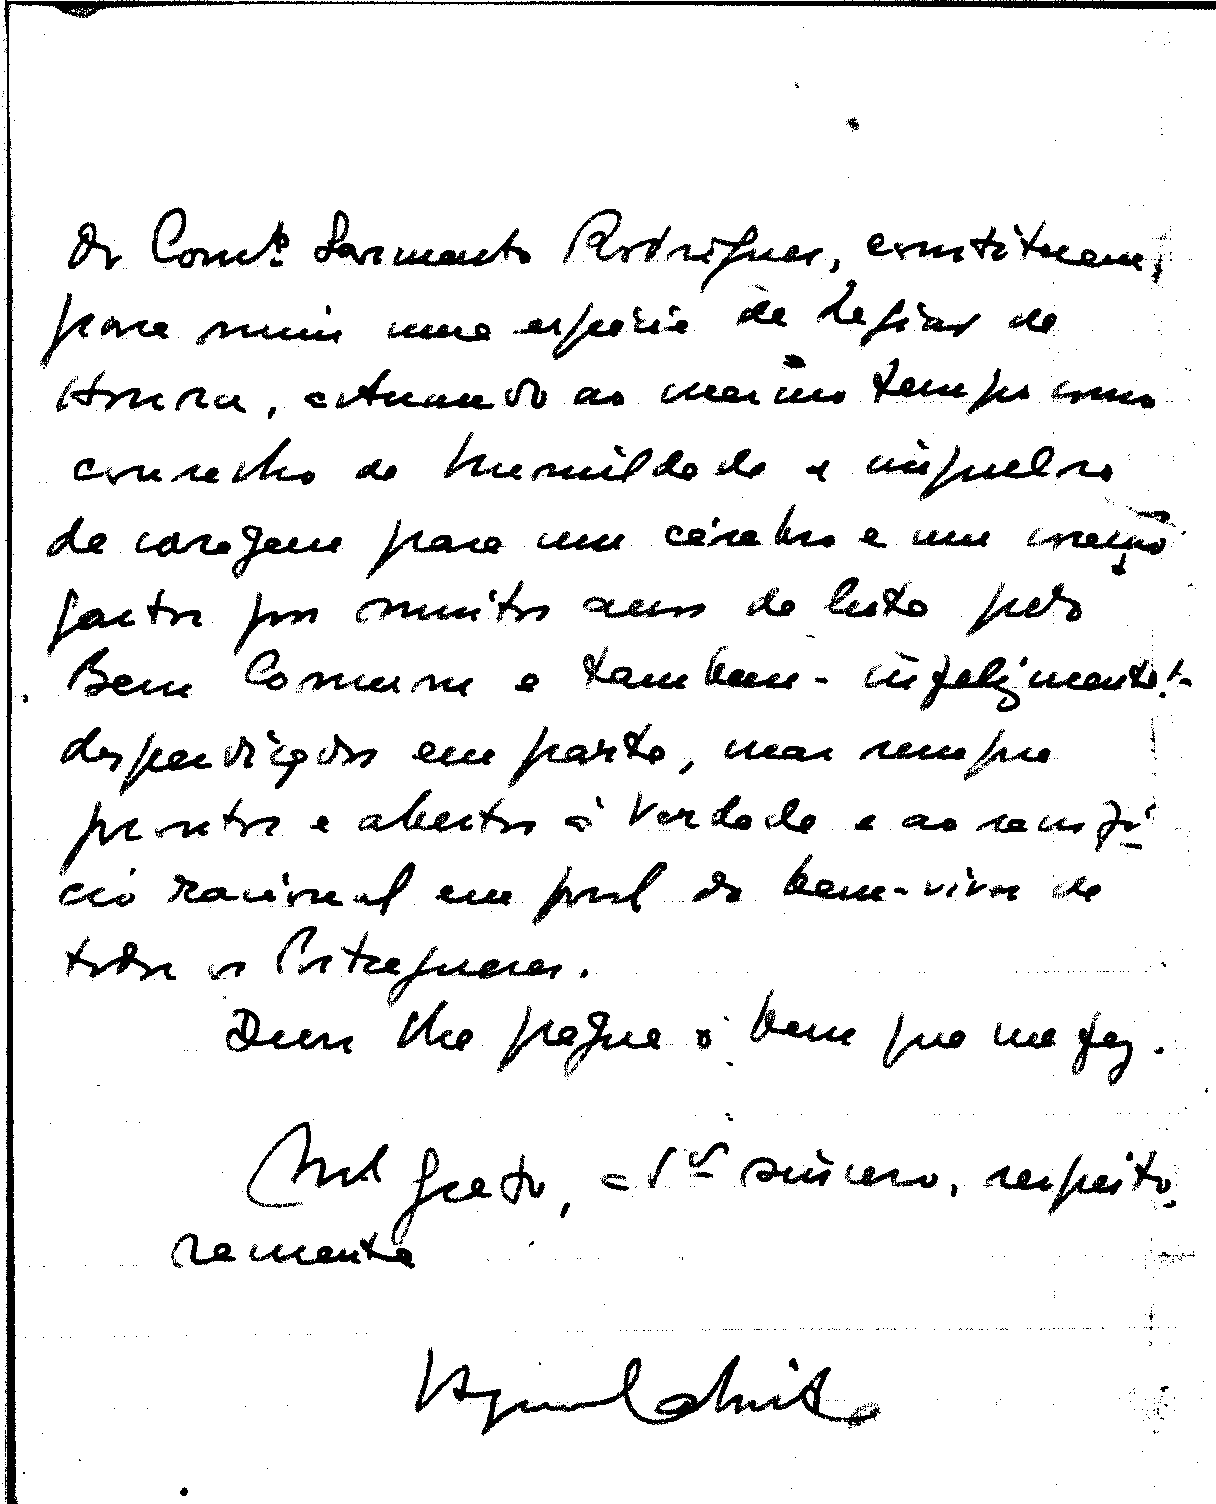 do Comt.e Sarmento Rodrigues, constituem,
para mim uma espécie de Legião de
Honra, actuando ao mesmo tempo como
conselho de humildade e impulso
de coragem para um cérebro e um coração
gastos por muitos anos de luta pelo
Bem Comum e tambem - infelizmente! -
desperdiçados em parte, mas sempre
prontos e abertos à Verdade e ao sacrifí-
cio racional em prol do bem-viver de
todos os Portugueses.
Deus lhe pague o bem que me fez.
Mt grato, sincero, respeito-
samente